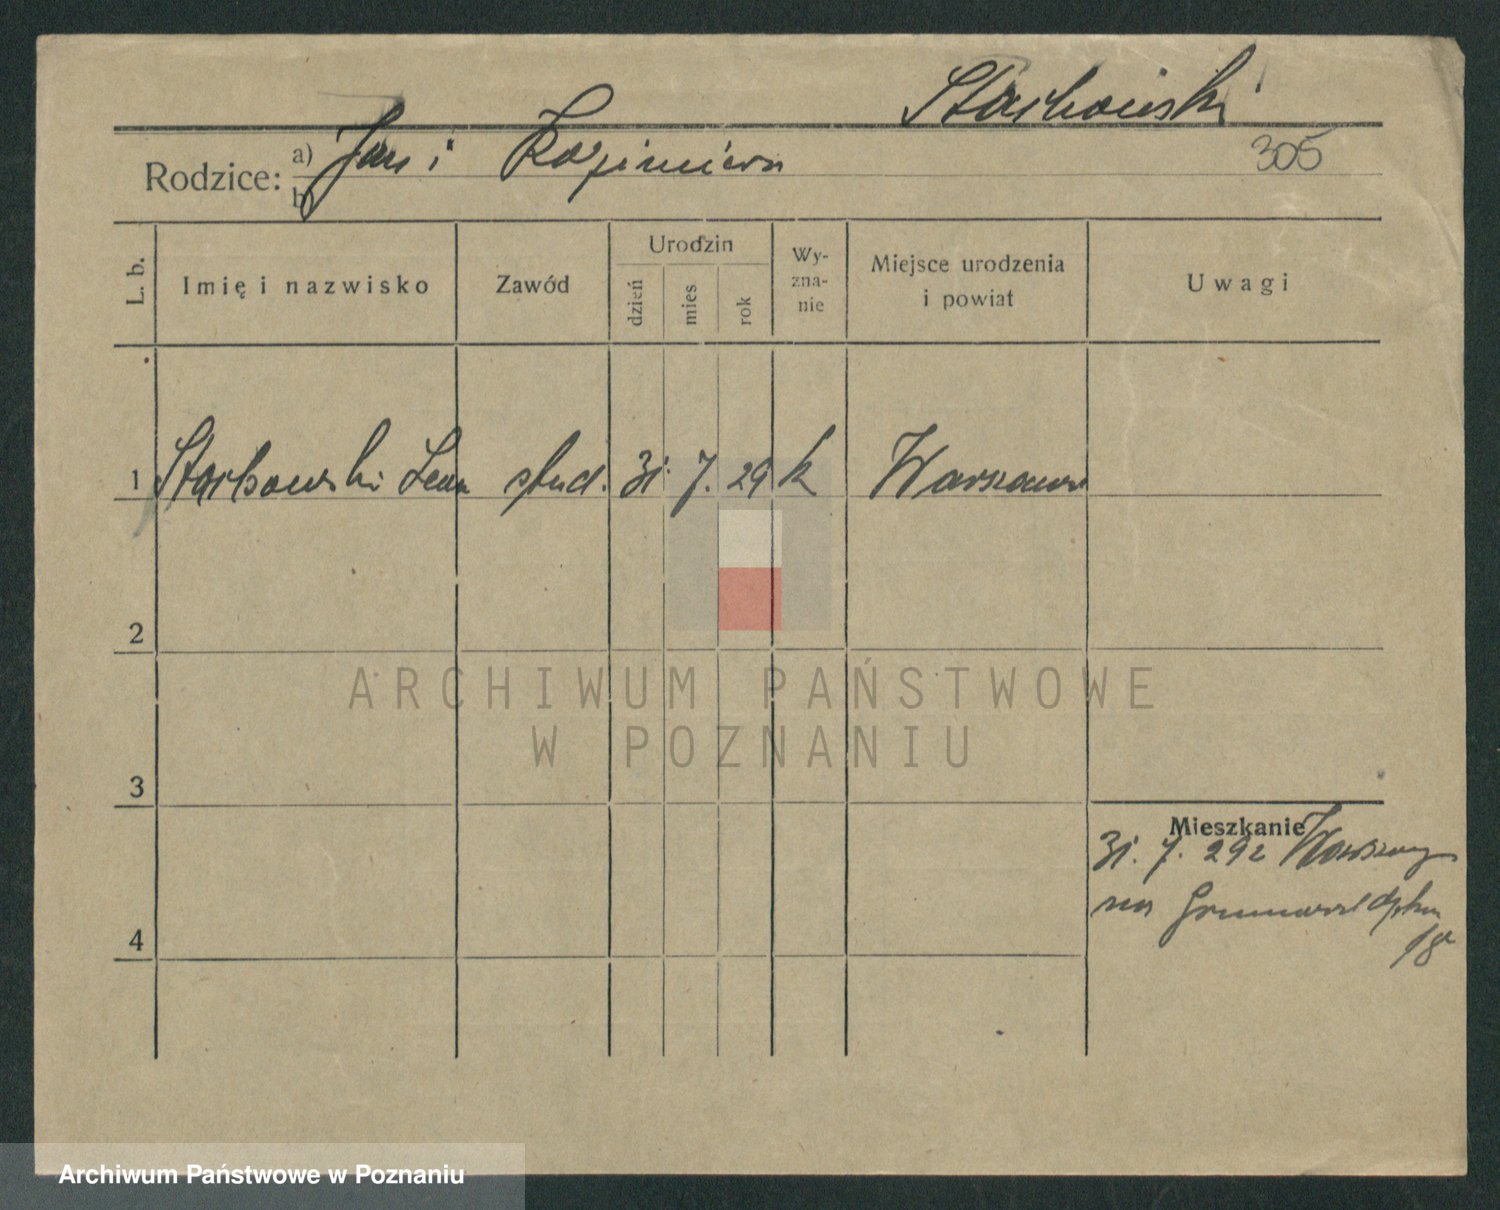 Stachowski
Rodzice: a) Jan i Kazimiera
b)
305
L. b.
Imię i nazwisko
Zawód
Urodzin
dzień
mies
rok
Wy-
zna-
nie
Miejsce urodzenia
i powiat
Uwagi
1 Stachowski Leon stud. 31. 7. 29 k Warszawa
2
3
4
Mieszkanie
31. 7. 29 z Warszawy
na
18
ARCHIWUM PAŃSTWOWE
W POZNANIU
Archiwum Państwowe w Poznaniu